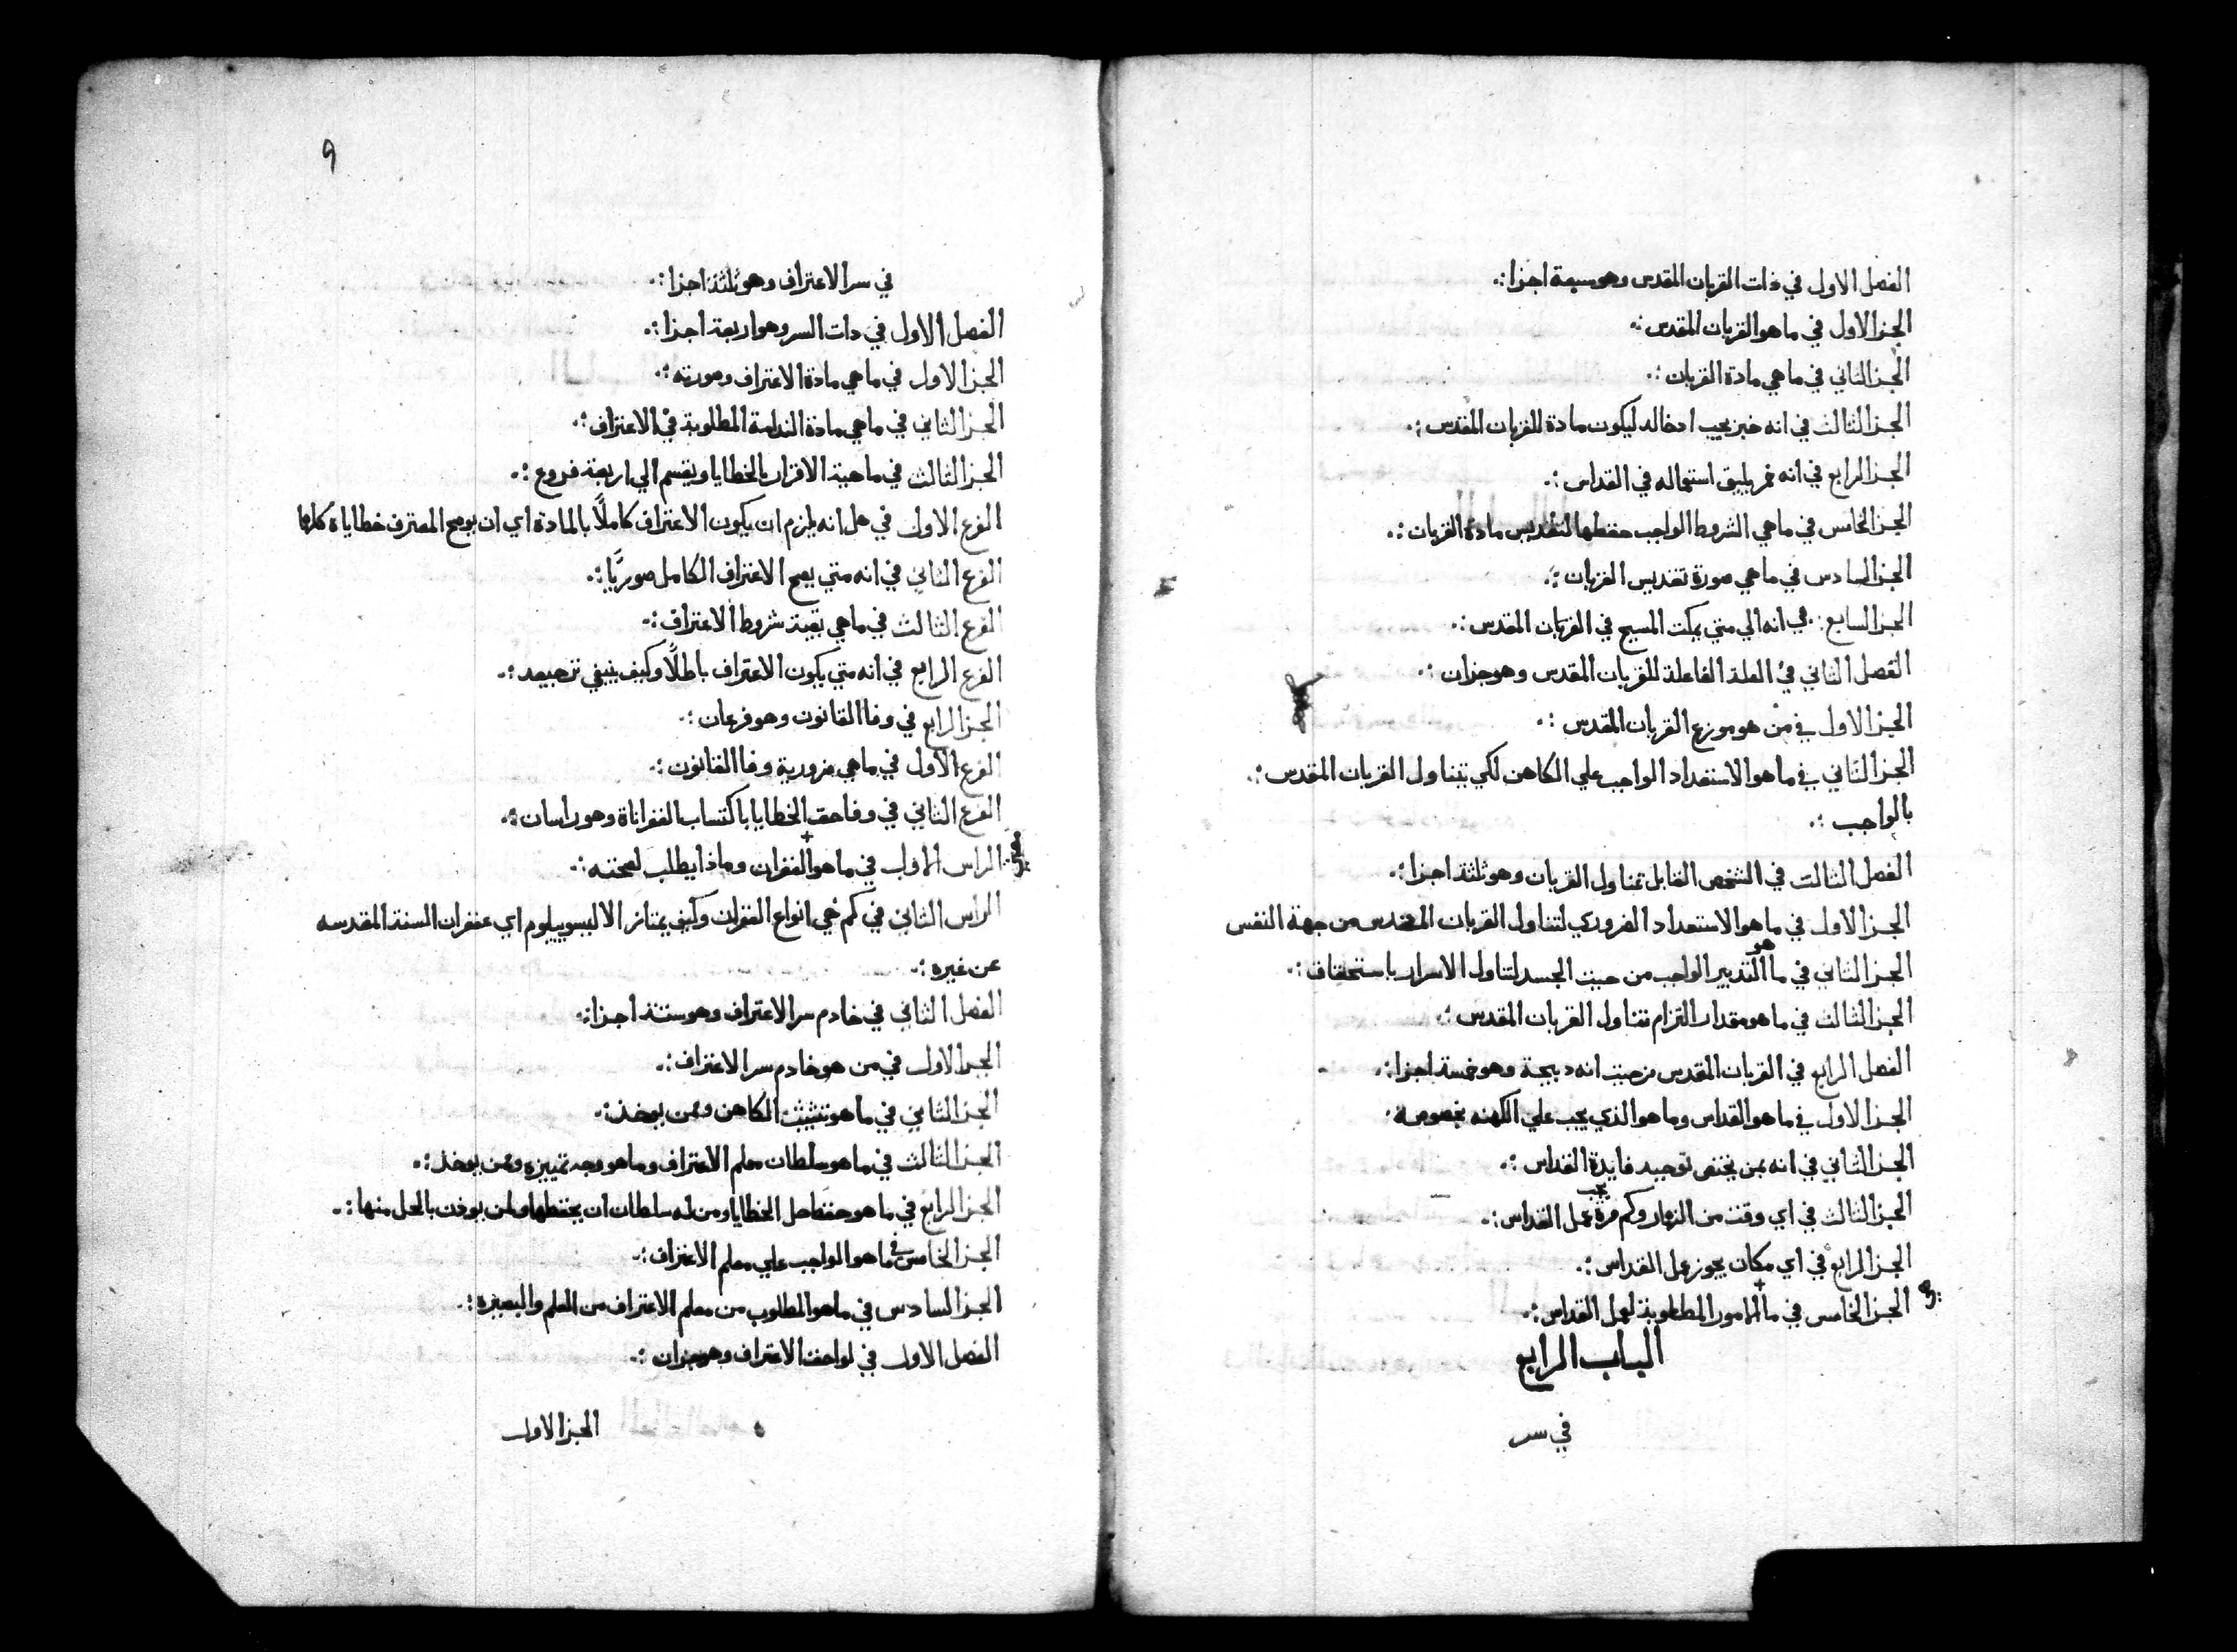 الفصل الاول في ذات القربان المقدس وهو سبعة اجزا :.
الجز الاول في ما هو القربان المقدس :.
الجز الثاني في ما هي مادة القربان :.
الجز الثالث في انه خبز يجب ادخاله ليكون مادة للقربان المقدس :.
الجز الرابع في انه خمر يليق استعماله في القداس :.
الجز الخامس في ما هي الشروط الواجب حفظها لتقديس مادة القربان :.
الجز السادس في ما هي صورة تقديس القربان :.
الجز السابع في انه الي متي يمكث المسيح في القربان المقدس :.
الفصل الثاني في العلة الفاعلة للقربان المقدس وهو جزان :.
الجز الاول في من هو موزع القربان المقدس :.
الجز الثاني في ما هو الاستعداد الواجب علي الكاهن لكي يتناول القربان المقدس :.
بالواجب :.
الفصل الثالث في الشخص القابل تناول القربان وهو ثلثة اجزا :.
الجز الاول في ما هو الاستعداد الضروري لتناول القربان المقدس من جهة النفس
الجز الثاني في ما هو التدبير الواجب من حيث الجسد لتناول الاسرار باستحقاق :.
الجز الثالث في ما هو مقدار التزام تناول القربان المقدس :.
الفصل الرابع في القربان المقدس من حيث انه دبيحة وهو خمسة اجزا :.
الجز الاول في ما هو القداس وما هو الذي يجب علي الكهنه بخصوصه :
الجز الثاني في انه بمن يختص توجيه فايدة القداس :.
الجز الثالث في اي وقت من النهار وكم مرة يجب عمل القداس :.
الجز الرابع في اي مكان يجوز عمل القداس :.
الجز الخامس في ما الامور المطلوبة لعمل القداس :.
هي
الباب الرابع
في سر
9
في سر الاعتراف وهو ثلثة اجزا :.
الفصل الاول في دات السر وهو اربعة اجزا :.
الجز الاول في ما هي مادة الاعتراف وصورته :.
الجز الثاني في ما هي مادة الندامة المطلوبة في الاعتراف :.
الجز الثالث في ماهية الاقرار بالخطايا ويقسم الي اربعة فروع :.
الفرع الاول في هل انه يلزم ان يكون الاعتراف كاملًا بالمادة اي ان يوضح المعترف خطاياة كلها
الفرع الثاني في انه متي يصح الاعتراف الكامل صوريًا :.
الفرع الثالث في ما هي بقية شروط الاعتراف :.
الفرع الرابع في انه متي يكون الاعتراف باطلًا وكيف ينبغي ترجيعه :.
الجز الرابع في وفا القانون وهو فرعان :.
الفرع الاول في ما هي ضرورية وفا القانون :.
الفرع الثاني في وفا حق الخطايا باكتساب الغفراناة وهو راسان :.
الراس الاول في ما هو الغفران وماذا يطلب لصحته :.
الراس الثاني في كم هي انواع الغفران وكيف يمتاز الاليبوبيليوم اي غفران السنة المقدسه
عن غيره :.
الفصل الثاني في خادم سر الاعتراف وهو ستة اجزا :.
الجز الاول في من هو خادم سر الاعتراف :.
الجز الثاني في ما هو تثبيت الكاهن وممن يوخذ :.
الجز الثالث في ما هو سلطان معلم الاعتراف وما هو وجه تمييزه وممن يوخذ :.
الجز الرابع في ما هو حفظ حل الخطايا ومن له سلطان ان يحفظها ولمن يوذن بالحل منها :.
الجز الخامس في ما هو الواجب علي معلم الاعتراف :.
الجز السادس في ما هو المطلوب من معلم الاعتراف من العلم والبصيرة :.
الفصل الاول في لواحق الاعتراف وهو جزان :.
الجز الاول